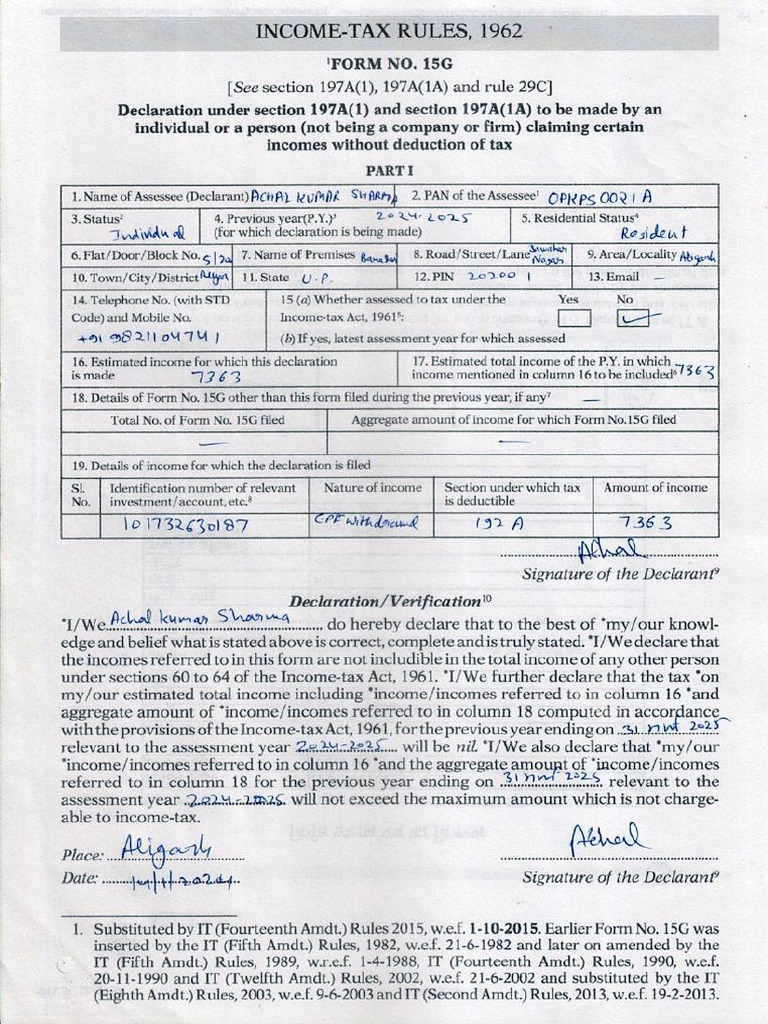 INCOME-TAX RULES, 1962
¹FORM NO. 15G
[See section 197A(1), 197A(1A) and rule 29C]
Declaration under section 197A(1) and section 197A(1A) to be made by an
individual or a person (not being a company or firm) claiming certain
incomes without deduction of tax
PART I
1. Name of Assessee (Declarant) ACHAL KUMAR SHARMA 2. PAN of the Assessee¹ OPKPS0021A
3. Status² Individual 4. Previous year(P.Y.)³ 2024-2025 (for which declaration is being made) 5. Residential Status⁴ Resident
6. Flat/Door/Block No. 7. Name of Premises 8. Road/Street/Lane Nagar 9. Area/Locality Aligarh
10. Town/City/District 11. State U.P. 12. PIN 202001 13. Email –
14. Telephone No. (with STD 15 (a) Whether assessed to tax under the Yes No
Code) and Mobile No. Income-tax Act, 1961⁵: ✓
+91 9821104741 (b) If yes, latest assessment year for which assessed
16. Estimated income for which this declaration 17. Estimated total income of the P.Y. in which
is made 7363 income mentioned in column 16 to be included⁶ 7363
18. Details of Form No. 15G other than this form filed during the previous year, if any⁷ –
Total No. of Form No. 15G filed Aggregate amount of income for which Form No.15G filed
– –
19. Details of income for which the declaration is filed
Sl. Identification number of relevant Nature of income Section under which tax Amount of income
No. investment/account, etc.⁸ is deductible
101732630187 withdrawal 192 A 7363
Achal
Signature of the Declarant⁹
Declaration/Verification¹⁰
*I/We Achal Kumar Sharma do hereby declare that to the best of *my/our knowl-
edge and belief what is stated above is correct, complete and is truly stated. *I/We declare that
the incomes referred to in this form are not includible in the total income of any other person
under sections 60 to 64 of the Income-tax Act, 1961. *I/We further declare that the tax *on
my/our estimated total income including *income/incomes referred to in column 16 *and
aggregate amount of *income/incomes referred to in column 18 computed in accordance
with the provisions of the Income-tax Act, 1961, for the previous year ending on 31 2025
relevant to the assessment year 2024-2025 will be nil. *I/We also declare that *my/our
*income/incomes referred to in column 16 *and the aggregate amount of *income/incomes
referred to in column 18 for the previous year ending on 31 2025 relevant to the
assessment year 2024-2025 will not exceed the maximum amount which is not charge-
able to income-tax.
Place: Aligarh Achal
Date: Signature of the Declarant⁹
1. Substituted by IT (Fourteenth Amdt.) Rules 2015, w.e.f. 1-10-2015. Earlier Form No. 15G was
inserted by the IT (Fifth Amdt.) Rules, 1982, w.e.f. 21-6-1982 and later on amended by the
IT (Fifth Amdt.) Rules, 1989, w.r.e.f. 1-4-1988, IT (Fourteenth Amdt.) Rules, 1990, w.e.f.
20-11-1990 and IT (Twelfth Amdt.) Rules, 2002, w.e.f. 21-6-2002 and substituted by the IT
(Eighth Amdt.) Rules, 2003, w.e.f. 9-6-2003 and IT (Second Amdt.) Rules, 2013, w.e.f. 19-2-2013.